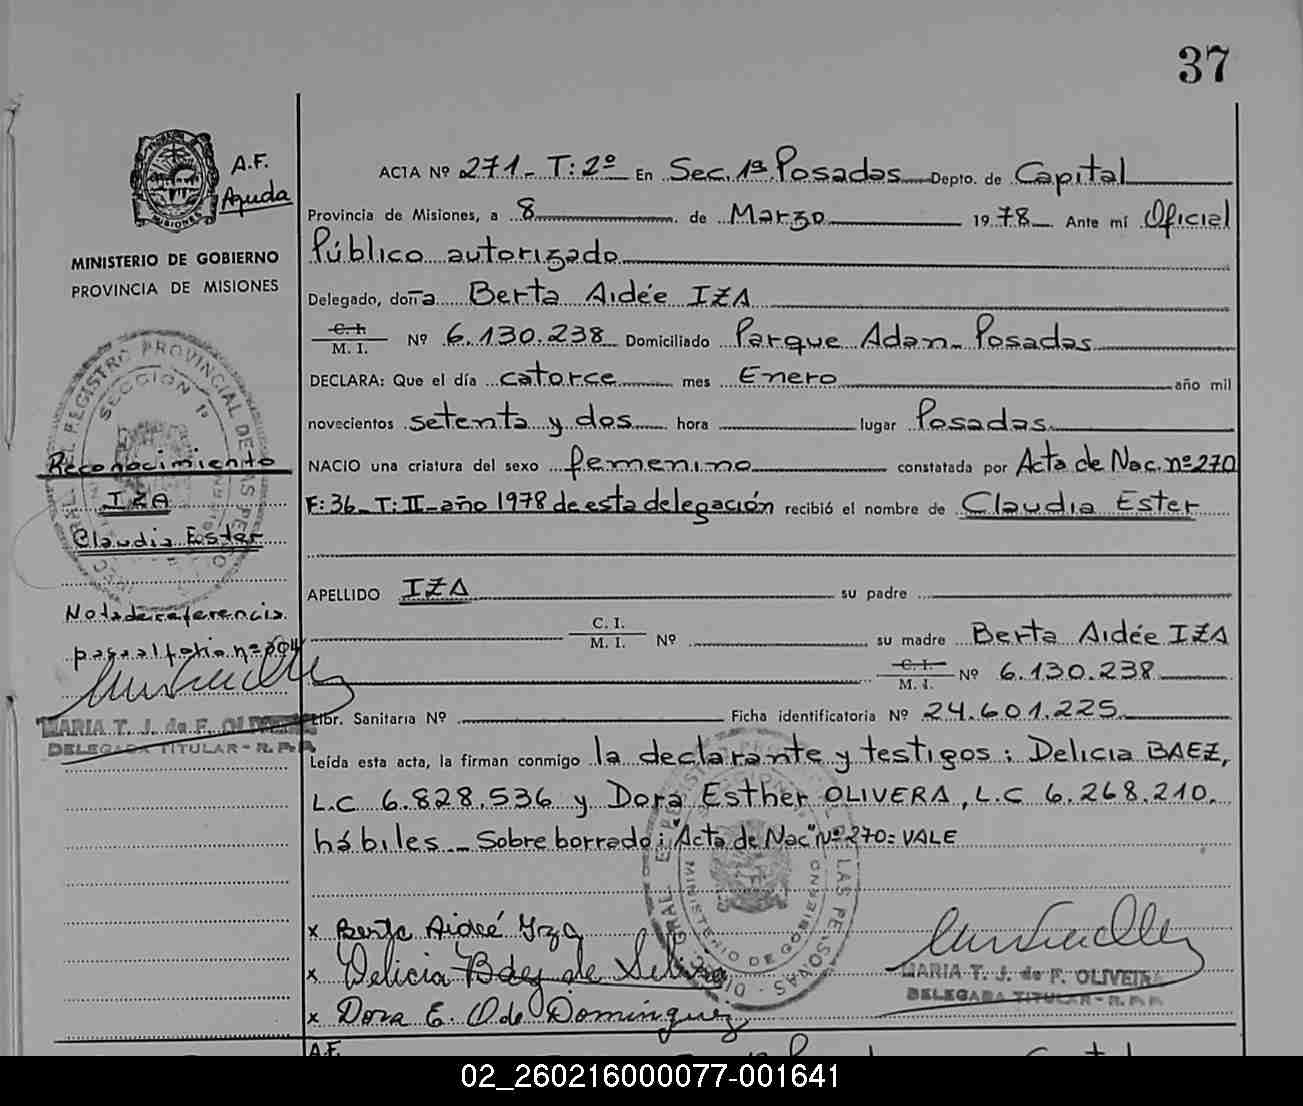 37
A.F.
Ayuda
MISIONES
MINISTERIO DE GOBIERNO
PROVINCIA DE MISIONES
REGISTRO PROVINCIAL DE LAS PERSONAS
SECCION 1ª
Reconocimiento
IZA
Claudia Ester
Nota de referencia
pasa al folio nº
MARIA T. J. de F. OLIVEIRA
DELEGADA TITULAR - R.P.P.
ACTA Nº 271 - T: 2º En Sec. 1ª Posadas Depto. de Capital
Provincia de Misiones, a 8 de Marzo 1978 Ante mí Oficial
Público autorizado
Delegado, doña Berta Aidée IZA
C. I.
M. I. Nº 6.130.238 Domiciliado Parque Adan - Posadas
DECLARA: Que el día catorce mes Enero año mil
novecientos setenta y dos hora lugar Posadas
NACIO una criatura del sexo femenino constatada por Acta de Nac. nº 270
F: 36 - T: II - año 1978 de esta delegación recibió el nombre de Claudia Ester
APELLIDO IZA su padre
C. I.
M. I. Nº su madre Berta Aidée IZA
C. I.
M. I. Nº 6.130.238
Libr. Sanitaria Nº Ficha identificatoria Nº 24.601.225
Leída esta acta, la firman conmigo la declarante y testigos: Delicia BAEZ,
L.C 6.828.536 y Dora Esther OLIVERA, L.C 6.268.210.
hábiles - Sobre borrado: "Acta de Nac" Nº 270 = VALE
MINISTERIO DE GOBIERNO
x Berta Aideé Yza
x Delicia Baez de Silva
x Dora E. O. de Dominguez
MARIA T. J. de F. OLIVEIRA
DELEGADA TITULAR - R.P.P.
A.F.
02_260216000077-001641